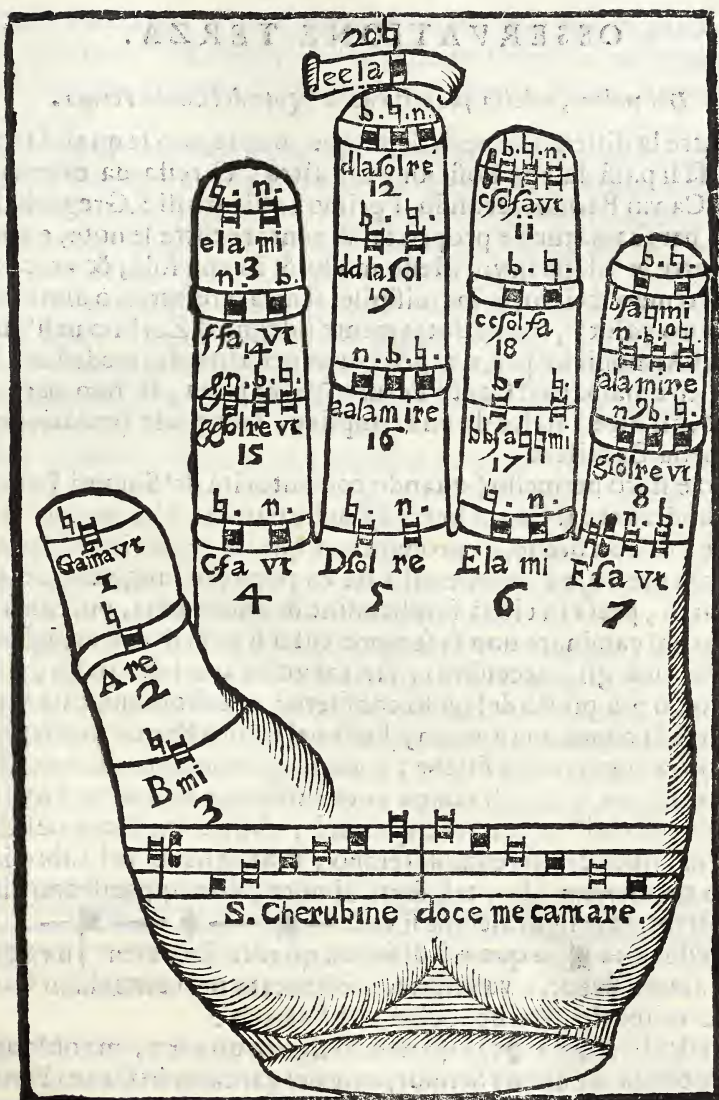 20
eela
b. ♮. n.
dlasolre
12
b. ♮.
ddlasol
19
n. b. ♮.
aalamire
16
♮. n.
Dsol re
5
♮. n.
ela mi
13
n. b.
ffa vt
14
n. b. ♮.
ggsolre vt
15
♮. n.
Cfa vt
4
b. ♮. n.
csolfavt
11
b. ♮.
ccsolfa
18
b. ♮.
bbfa♮♮mi
17
♮. n.
Ela mi
6
b. ♮.
bfa♮mi
10
n. b.
alamire
9
n. b. ♮.
gsolre vt
8
n. b.
Ffa vt
7
♮
Gamavt
1
♮
Are
2
♮
Bmi
3
S. Cherubine doce me cantare.